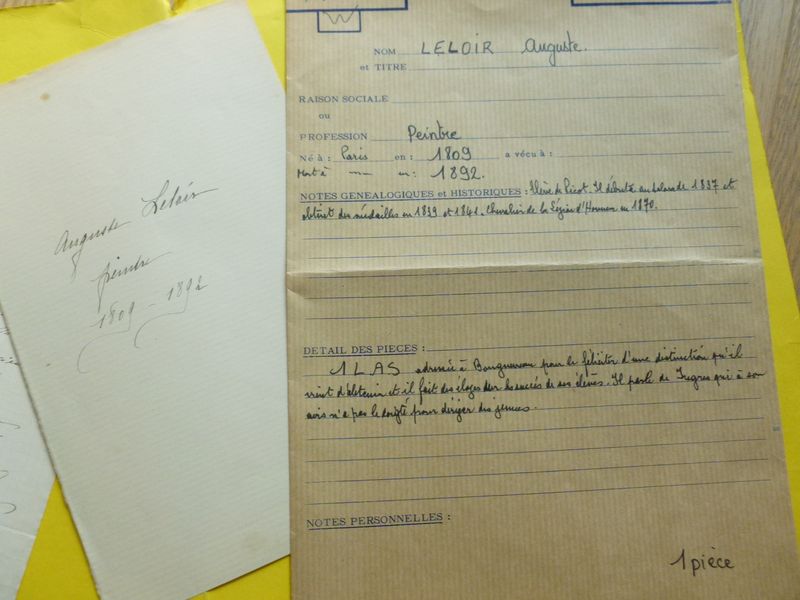 Auguste Leloir
peintre
1809 - 1892
NOM LELOIR Auguste.
et TITRE
RAISON SOCIALE
ou
PROFESSION Peintre
Né à : Paris en : 1809 a vécu à :
Mort à — en : 1892.
NOTES GENEALOGIQUES et HISTORIQUES : Elève de Picot. Il débute au salon de 1837 et
obtient des médailles en 1839 et 1841. Chevalier de la Légion d'Honneur en 1870.
DETAIL DES PIECES :
1 LAS adressée à Bouguereau pour le féliciter d'une distinction qu'il
vient d'obtenir et il fait des éloges sur les succès de ses élèves. Il parle de Ingres qui à son
avis n'a pas le doigté pour diriger des jeunes.
NOTES PERSONNELLES :
1 pièce